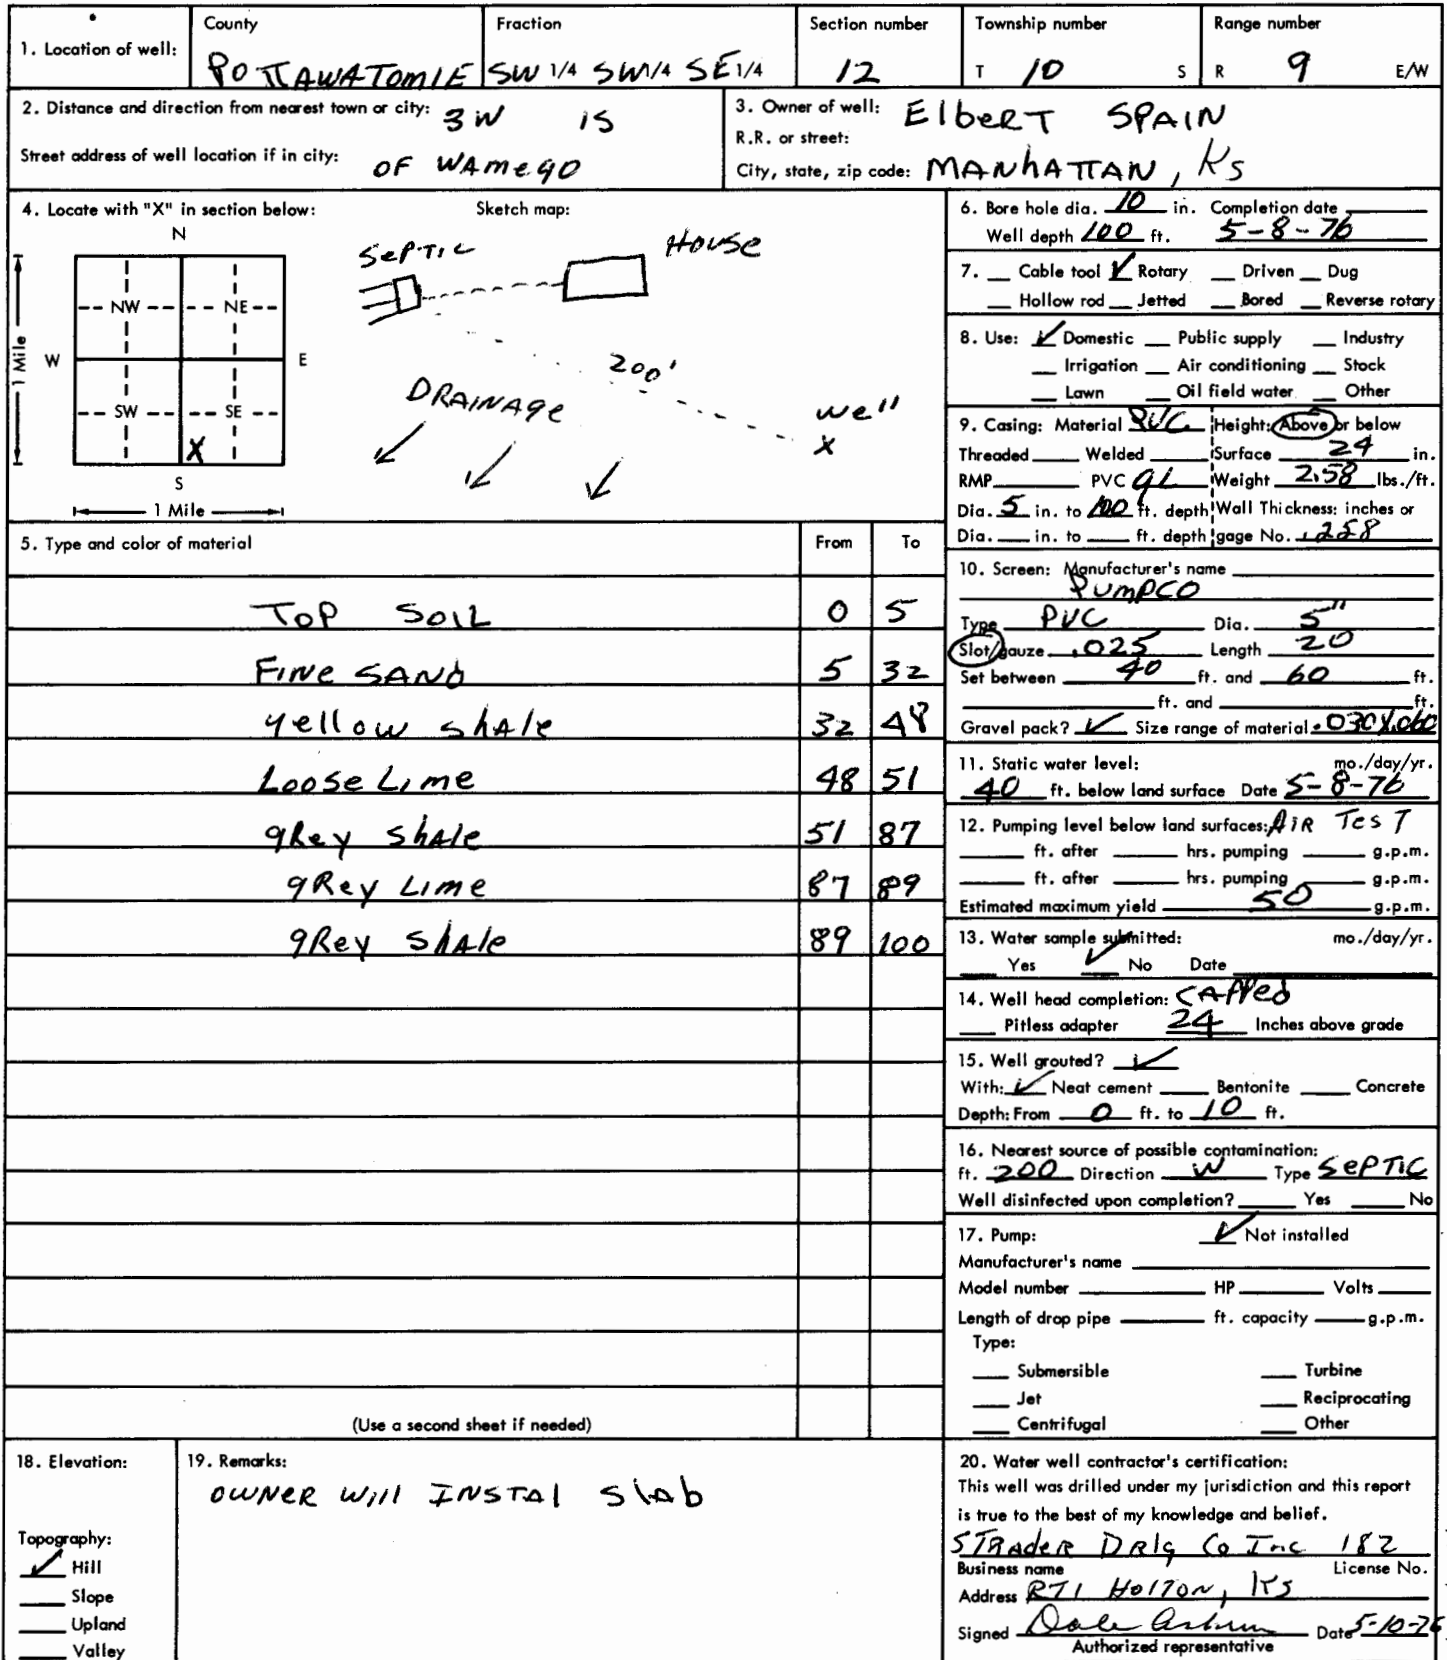 1. Location of well: County Fraction Section number Township number Range number
POTTAWATOMIE SW 1/4 SW 1/4 SE 1/4 12 T 10 S R 9 E/W
2. Distance and direction from nearest town or city: 3W 1S
Street address of well location if in city: OF WAMEGO
3. Owner of well: Elbert SPAIN
R.R. or street:
City, state, zip code: MANHATTAN, KS
4. Locate with "X" in section below: Sketch map:
N
NW NE
W E
SW SE
X
S
1 Mile
1 Mile
SEPTIC HOUSE
200'
DRAINAGE
well
X
5. Type and color of material From To
TOP SOIL 0 5
FINE SAND 5 32
Yellow shAle 32 48
Loose Lime 48 51
gRey ShAle 51 87
gRey Lime 87 89
gRey ShAle 89 100
(Use a second sheet if needed)
6. Bore hole dia. 10 in. Completion date
Well depth 100 ft. 5-8-76
7. Cable tool ✓ Rotary Driven Dug
Hollow rod Jetted Bored Reverse rotary
8. Use: ✓ Domestic Public supply Industry
Irrigation Air conditioning Stock
Lawn Oil field water Other
9. Casing: Material PVC Height: Above or below
Threaded Welded Surface 24 in.
RMP PVC GL Weight 2.58 lbs./ft.
Dia. 5 in. to 100 ft. depth Wall Thickness: inches or
Dia. in. to ft. depth gage No. .258
10. Screen: Manufacturer's name
PUMPCO
Type PVC Dia. 5"
Slot/gauze .025 Length 20
Set between 40 ft. and 60 ft.
ft. and ft.
Gravel pack? ✓ Size range of material .030X.060
11. Static water level: mo./day/yr.
40 ft. below land surface Date 5-8-76
12. Pumping level below land surfaces: AIR TesT
ft. after hrs. pumping g.p.m.
ft. after hrs. pumping g.p.m.
Estimated maximum yield 50 g.p.m.
13. Water sample submitted: mo./day/yr.
Yes ✓ No Date
14. Well head completion: CAPPED
Pitless adapter 24 Inches above grade
15. Well grouted? ✓
With: ✓ Neat cement Bentonite Concrete
Depth: From 0 ft. to 10 ft.
16. Nearest source of possible contamination:
ft. 200 Direction W Type SEPTIC
Well disinfected upon completion? Yes No
17. Pump: ✓ Not installed
Manufacturer's name
Model number HP Volts
Length of drop pipe ft. capacity g.p.m.
Type:
Submersible Turbine
Jet Reciprocating
Centrifugal Other
18. Elevation:
Topography:
✓ Hill
Slope
Upland
Valley
19. Remarks:
OWNER Will INSTAl SlAb
20. Water well contractor's certification:
This well was drilled under my jurisdiction and this report
is true to the best of my knowledge and belief.
STRADER DRlg Co Inc 182
Business name License No.
Address RT1 HolTON, KS
Signed Dale Date 5-10-76
Authorized representative